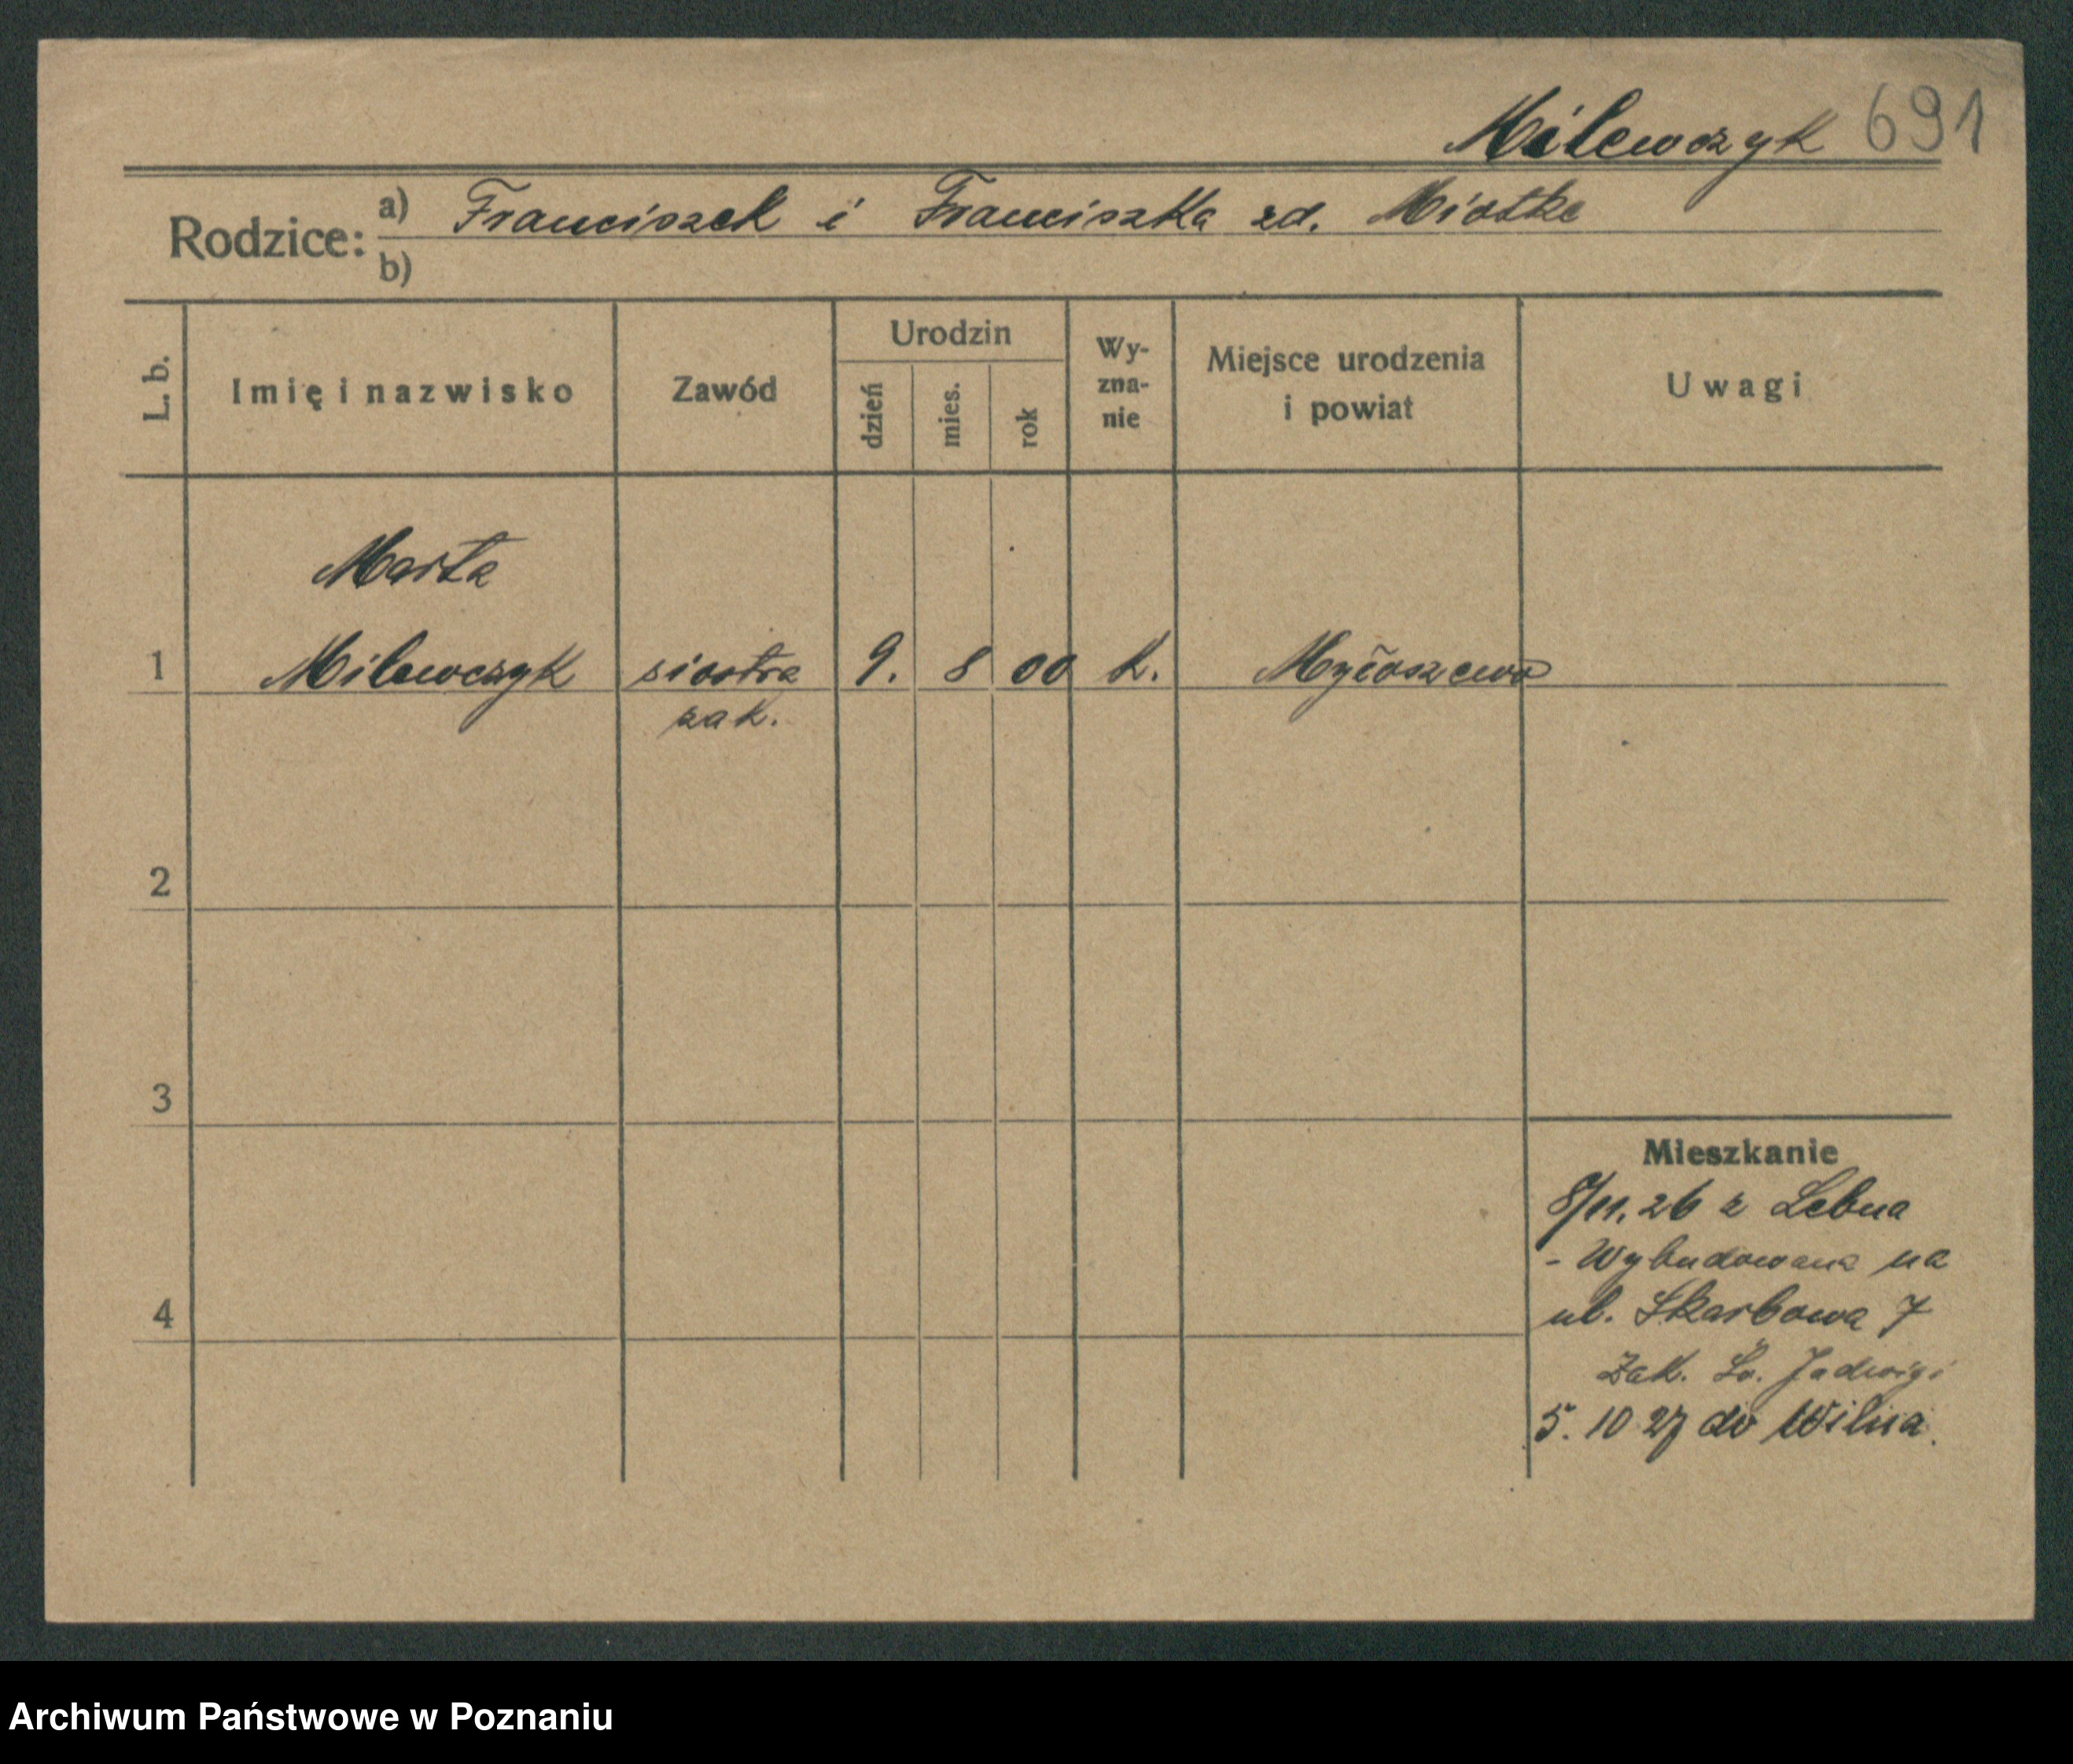 Milewczyk 691
Rodzice: a) Franciszek i Franciszka zd. Miotke
b)
L. b. Imię i nazwisko Zawód Urodzin dzień mies. rok Wy-zna-nie Miejsce urodzenia i powiat Uwagi
Marta
1 Milewczyk siostra 9. 8 00 k. Myłoszewo
zak.
2
3
Mieszkanie
8/11. 26 z Lebna
- Wybudowana na
4 ul. Skarbowa 7
Zak. Św. Jadwigi
5. 10 27 do Wilna.
Archiwum Państwowe w Poznaniu